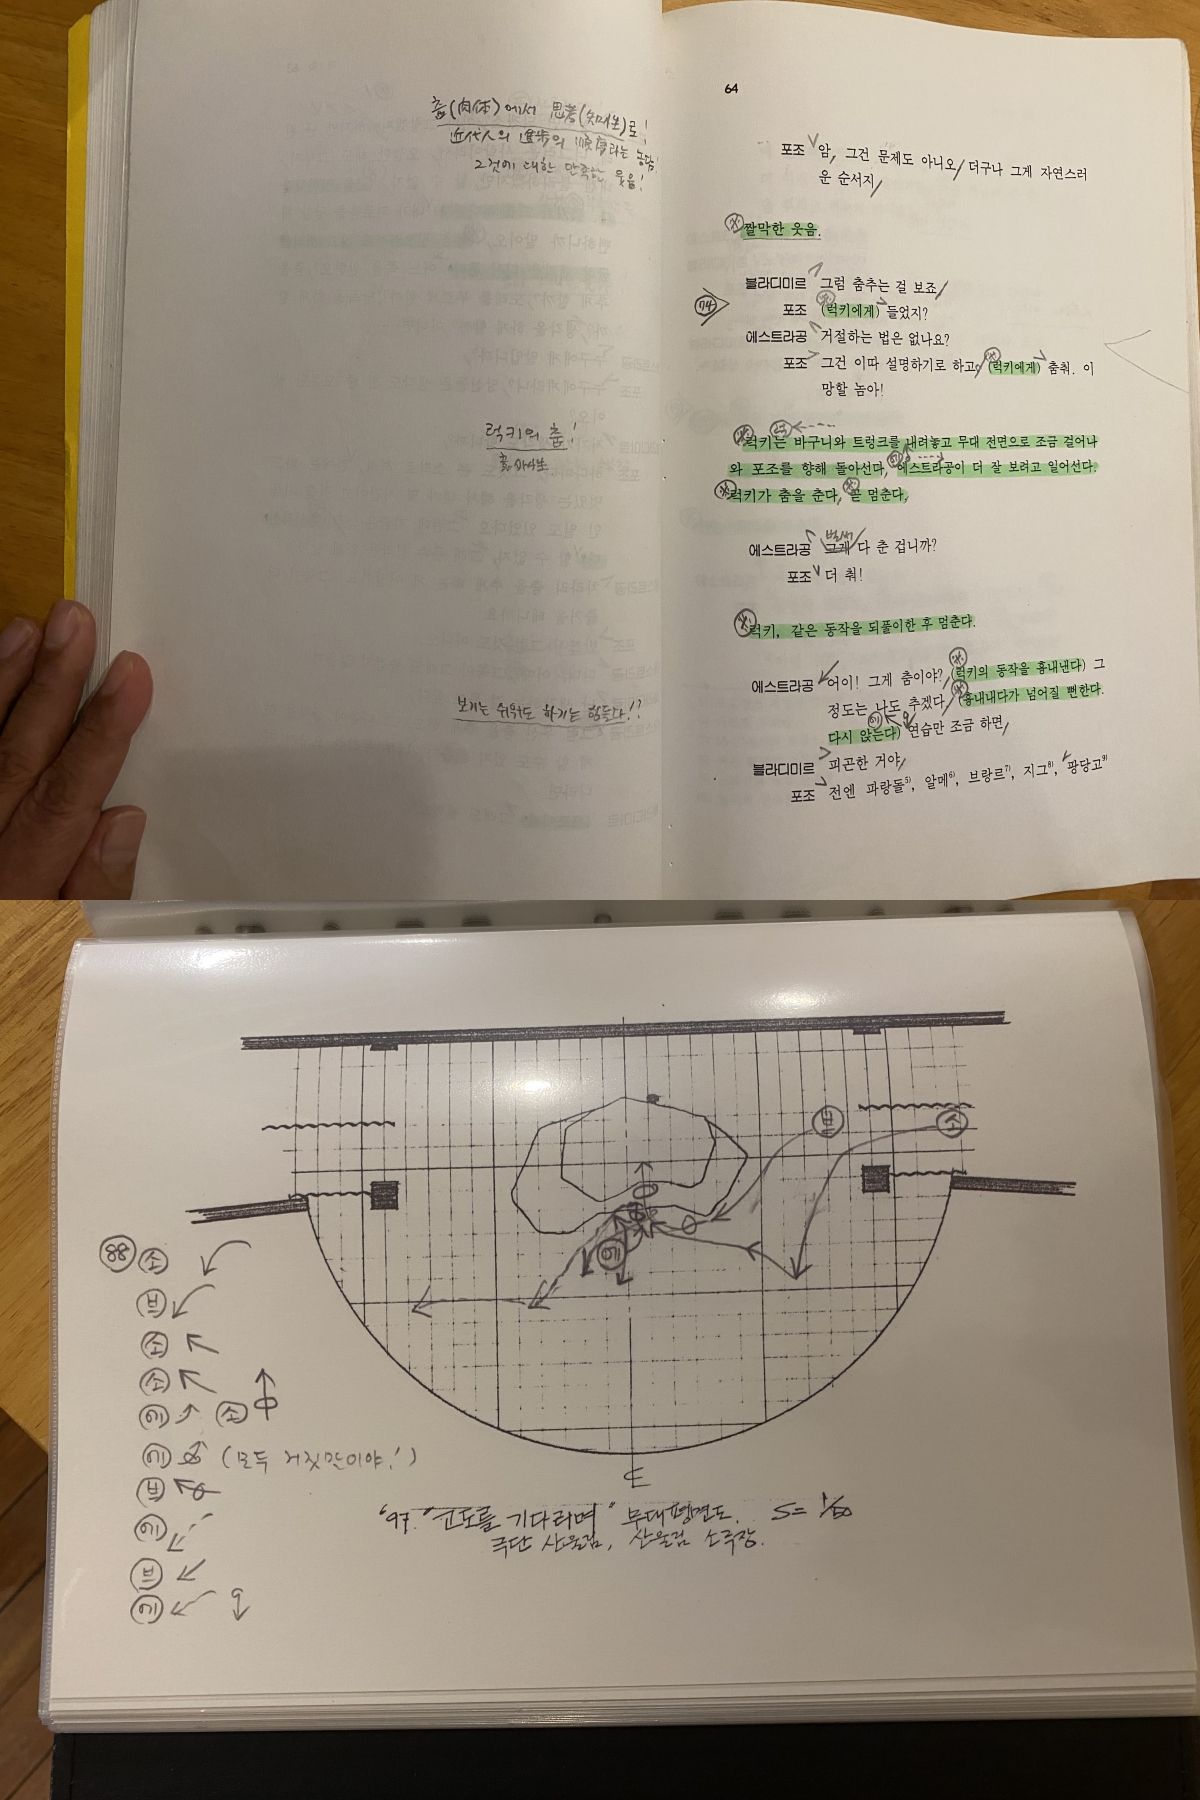 춤(肉体)에서 思考(知性)로!
近代人의 進步의 順序라는 농담!
그것에 대한 만족한 웃음!
럭키의 춤!
보기는 쉬워도 하기는 힘들다!?
64
포조 암, 그건 문제도 아니오/ 더구나 그게 자연스러
운 순서지/
짤막한 웃음.
블라디미르 그럼 춤추는 걸 보죠/
74
포조 (럭키에게) 들었지?
에스트라공 거절하는 법은 없나요?
포조 그건 이따 설명하기로 하고, (럭키에게) 춤춰. 이
망할 놈아!
럭키는 바구니와 트렁크를 내려놓고 무대 전면으로 조금 걸어나
와 포조를 향해 돌아선다, 에스트라공이 더 잘 보려고 일어선다.
럭키가 춤을 춘다, 곧 멈춘다,
벌써
에스트라공 그게 다 춘 겁니까?
포조 더 춰!
럭키, 같은 동작을 되풀이한 후 멈춘다.
에스트라공 어이! 그게 춤이야? (럭키의 동작을 흉내낸다) 그
정도는 나도 추겠다/ (흉내내다가 넘어질 뻔한다.
다시 앉는다) 연습만 조금 하면/
블라디미르 피곤한 거야/
포조 전엔 파랑돌5), 알메6), 브랑르7), 지그8), 팡당고9)
브 소
에
88 소
브
소
소
에 소
에 (모두 거짓말이야!)
브
에
브
에
'97. "고도를 기다리며" 무대평면도. S= 1/50
극단 산울림, 산울림 소극장.